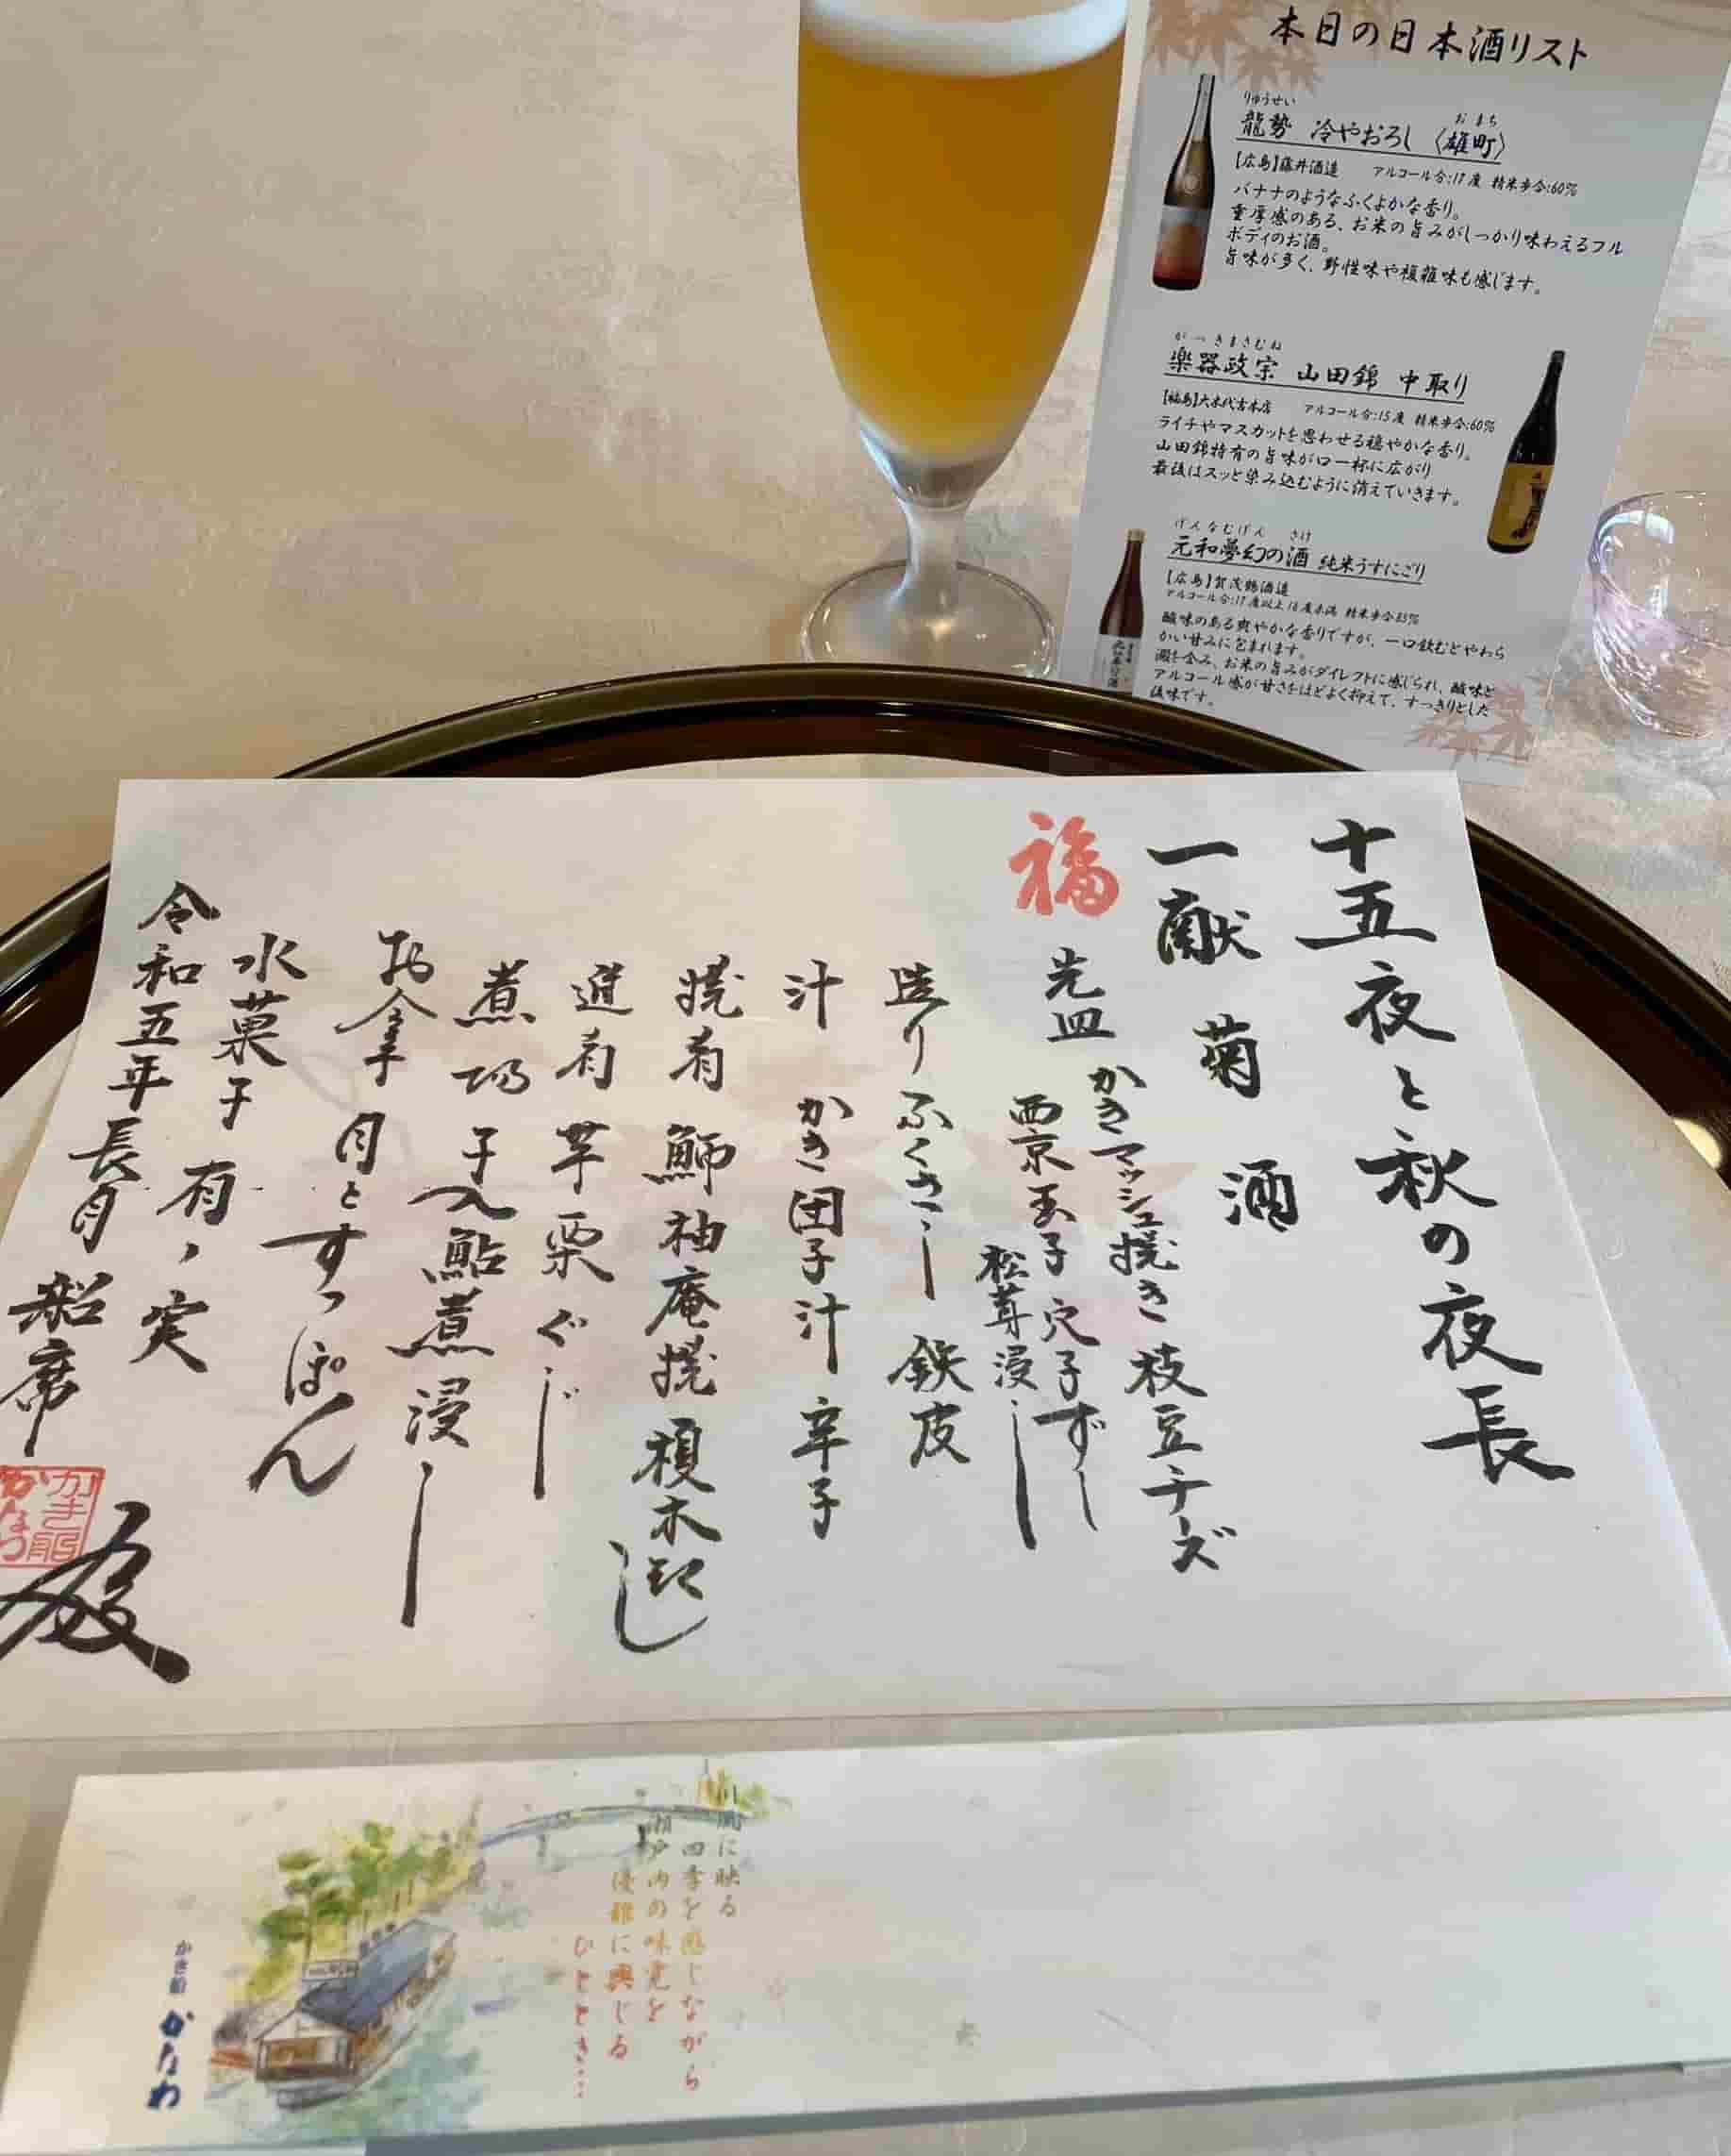 本日の日本酒リスト
りゅうせい
おまち
龍勢 冷やおろし〈雄町〉
【広島】藤井酒造 アルコール分:17度 精米歩合:60%
バナナのようなふくよかな香り。
重厚感のある、お米の旨みがしっかり味わえるフル
ボディのお酒。
旨味が多く、野性味や複雑味も感じます。
がっきまさむね
楽器政宗 山田錦 中取り
【福島】大木代吉本店 アルコール分:15度 精米歩合:60%
ライチやマスカットを思わせる穏やかな香り。
山田錦特有の旨味が口一杯に広がり
最後はスッと染み込むように消えていきます。
げんなむげん さけ
元和夢幻の酒 純米うすにごり
【広島】賀茂鶴酒造
アルコール分:17度以上18度未満 精米歩合:85%
酸味のある爽やかな香りですが、一口飲むとやわら
かい甘みに包まれます。
澱を含み、お米の旨みがダイレクトに感じられ、酸味と
アルコール感が甘さをほどよく抑えて、すっきりとした
後味です。
十五夜と秋の夜長
一献 菊酒
福
先皿 かきマッシュ焼き 枝豆チーズ
西京玉子 穴子ずし
松茸浸し
造り ふくさし 鉄皮
汁 かき団子汁 辛子
焼肴 鰤柚庵焼 榎木浸し
進肴 芋栗ぐじ
煮物 子入鮎煮浸し
お食事 月とすっぽん
水菓子 有ノ実
令和五年長月 船席
川風に映る
四季を感じながら
瀬戸内の味覚を
優雅に興じる
ひととき…
かき船 かなわ